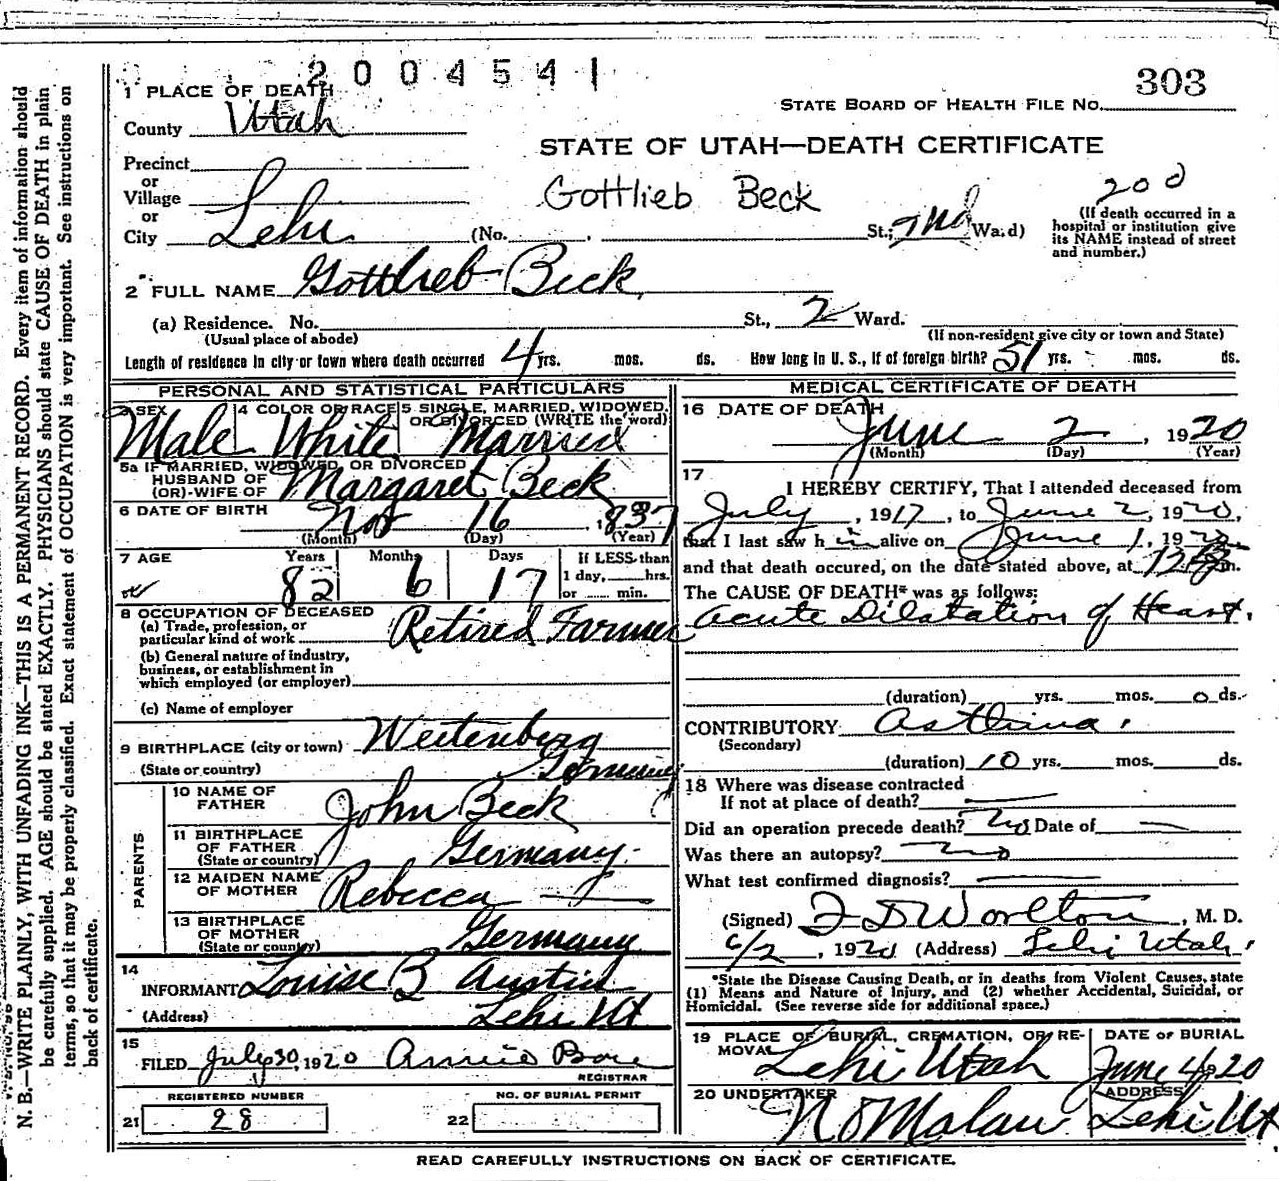 2004541
303
1 PLACE OF DEATH
STATE BOARD OF HEALTH FILE NO.
County Utah
STATE OF UTAH—DEATH CERTIFICATE
Precinct
or
Village
Gottlieb Beck
200
or
City Lehi (No. , St.; 2nd Ward)
(If death occurred in a hospital or institution give its NAME instead of street and number.)
2 FULL NAME Gottlieb Beck
(a) Residence. No. St., 2 Ward.
(Usual place of abode)
(If non-resident give city or town and State)
Length of residence in city or town where death occurred 4 yrs. mos. ds. How long in U. S., if of foreign birth? 51 yrs. mos. ds.
PERSONAL AND STATISTICAL PARTICULARS
3 SEX Male
4 COLOR OR RACE White
5 SINGLE, MARRIED, WIDOWED, OR DIVORCED (WRITE the word) Married
5a IF MARRIED, WIDOWED, OR DIVORCED
HUSBAND OF
(OR) WIFE OF Margaret Beck
6 DATE OF BIRTH Nov 16, 1837
(Month) (Day) (Year)
7 AGE Years Months Days If LESS than
82 6 17 1 day, hrs.
or min.
8 OCCUPATION OF DECEASED
(a) Trade, profession, or
particular kind of work Retired Farmer
(b) General nature of industry,
business, or establishment in
which employed (or employer)
(c) Name of employer
9 BIRTHPLACE (city or town) Weitenberg
(State or country) Germany
PARENTS
10 NAME OF
FATHER John Beck
11 BIRTHPLACE
OF FATHER
(State or country) Germany
12 MAIDEN NAME
OF MOTHER Rebecca
13 BIRTHPLACE
OF MOTHER
(State or country) Germany
14
INFORMANT Louise B Austin
(Address) Lehi Ut
15
FILED July 30, 1920 Annie
REGISTRAR
REGISTERED NUMBER
21 28
NO. OF BURIAL PERMIT
22
MEDICAL CERTIFICATE OF DEATH
16 DATE OF DEATH
June 2, 1920
(Month) (Day) (Year)
17
I HEREBY CERTIFY, That I attended deceased from
July, 1917, to June 2, 1920,
that I last saw him alive on June 1, 1920
and that death occured, on the date stated above, at m.
The CAUSE OF DEATH* was as follows:
Acute Dilatation of Heart.
(duration) yrs. mos. 0 ds.
CONTRIBUTORY Asthma.
(Secondary)
(duration) 10 yrs. mos. ds.
18 Where was disease contracted
If not at place of death?
Did an operation precede death? No Date of
Was there an autopsy? No
What test confirmed diagnosis?
(Signed) F D Worlton, M. D.
6/2, 1920 (Address) Lehi Utah.
*State the Disease Causing Death, or in deaths from Violent Causes, state
(1) Means and Nature of Injury, and (2) whether Accidental, Suicidal, or
Homicidal. (See reverse side for additional space.)
19 PLACE OF BURIAL, CREMATION, OR RE-
MOVAL Lehi Utah
DATE OF BURIAL
June 4, 20
20 UNDERTAKER
ADDRESS
Lehi Ut
READ CAREFULLY INSTRUCTIONS ON BACK OF CERTIFICATE.
N. B.—WRITE PLAINLY, WITH UNFADING INK—THIS IS A PERMANENT RECORD. Every item of information should
be carefully supplied. AGE should be stated EXACTLY. PHYSICIANS should state CAUSE OF DEATH in plain
terms, so that it may be properly classified. Exact statement of OCCUPATION is very important. See instructions on
back of certificate.